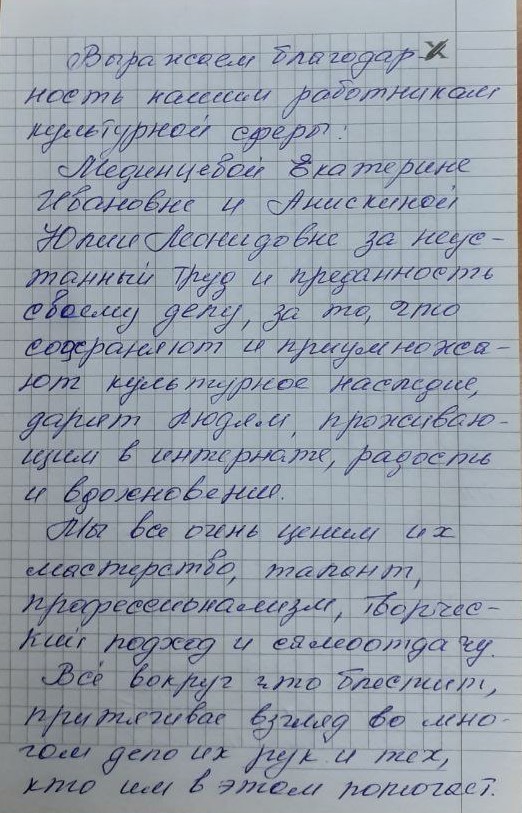 Выражаем благодар-
ность нашим работникам
культурной сферы:
Мединцевой Екатерине
Ивановне и Анискиной
Юлии Леонидовне за неус-
танный труд и преданность
своему делу, за то, что
сохраняют и приумножа-
ют культурное наследие,
дарят людям, проживаю-
щим в интернате, радость
и вдохновение.
Мы все очень ценим их
мастерство, талант,
профессионализм, творчес-
кий подход и самоотдачу.
Всё вокруг что блестит,
притягивае взгляд во мно-
гом дело их рук и тех,
кто им в этом помогает.